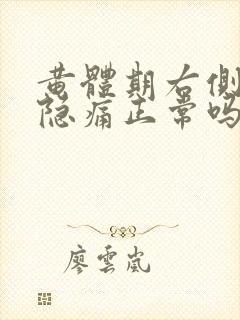 黄體期右側
隐痛正常吗
廖雲嵐